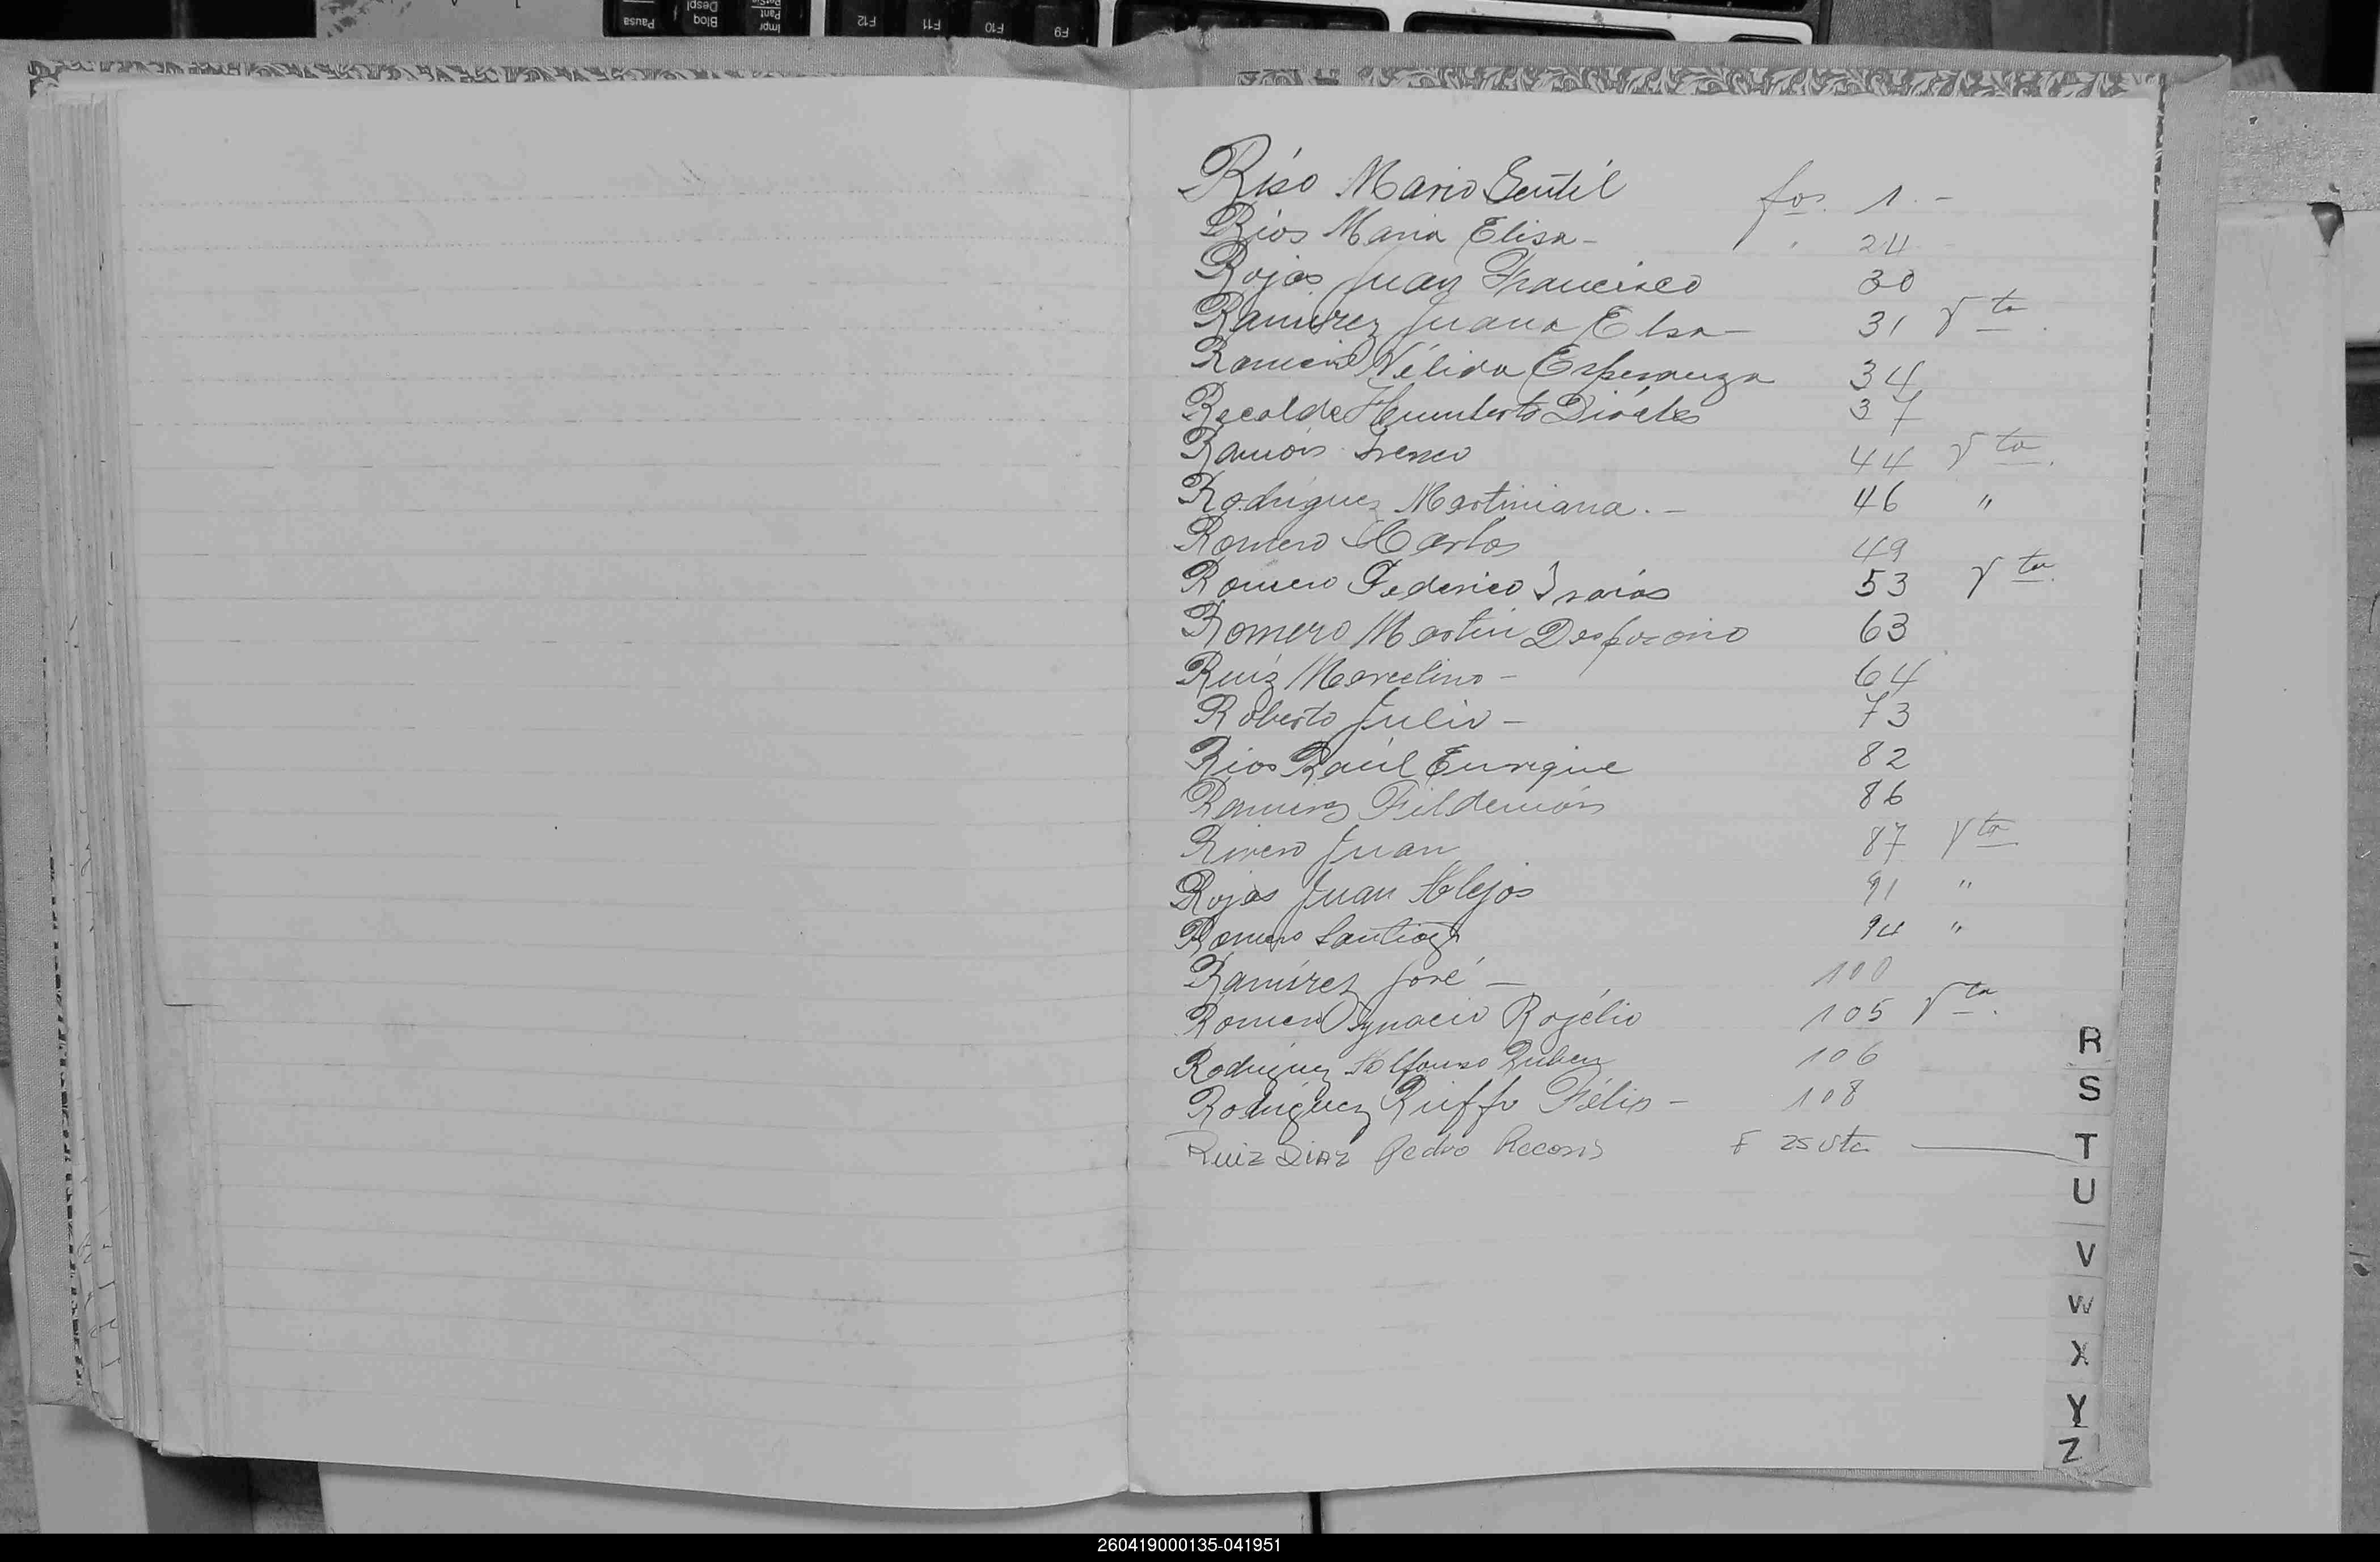 Riso Mario Gentil fos. 1. -
Rios Maria Elisa - " 24
Rojas Juan Francisco 30
Ramirez Juana Elsa - 31 vta.
Romero Nélida Esperanza 34
Recalde Humberto Diócles 37
Ramón Ireneo 44 vta.
Rodriguez Martiniana. - 46 "
Romero Carlos 49
Romero Federico Isaías 53 vta.
Romero Martin 63
Ruiz Marcelino - 64
Roberto Julio - 73
Rios Raúl Enrique 82
Ramirez Fildemón 86
Rivero Juan 87 vta.
Rojas Juan Alejos 91 "
Romero Santiago 94 "
Ramírez José - 100
Romero Ignacio Rogélio 105 vta.
Rodriguez Alfonso Ruben 106
Rodriguez Riffo Félix - 108
Ruiz Diaz Pedro F 25 vta
R
S
T
U
V
W
X
Y
Z
F9
F10
F11
F12
Impr
Pant
Bloq
Despl
Pausa
260419000135-041951